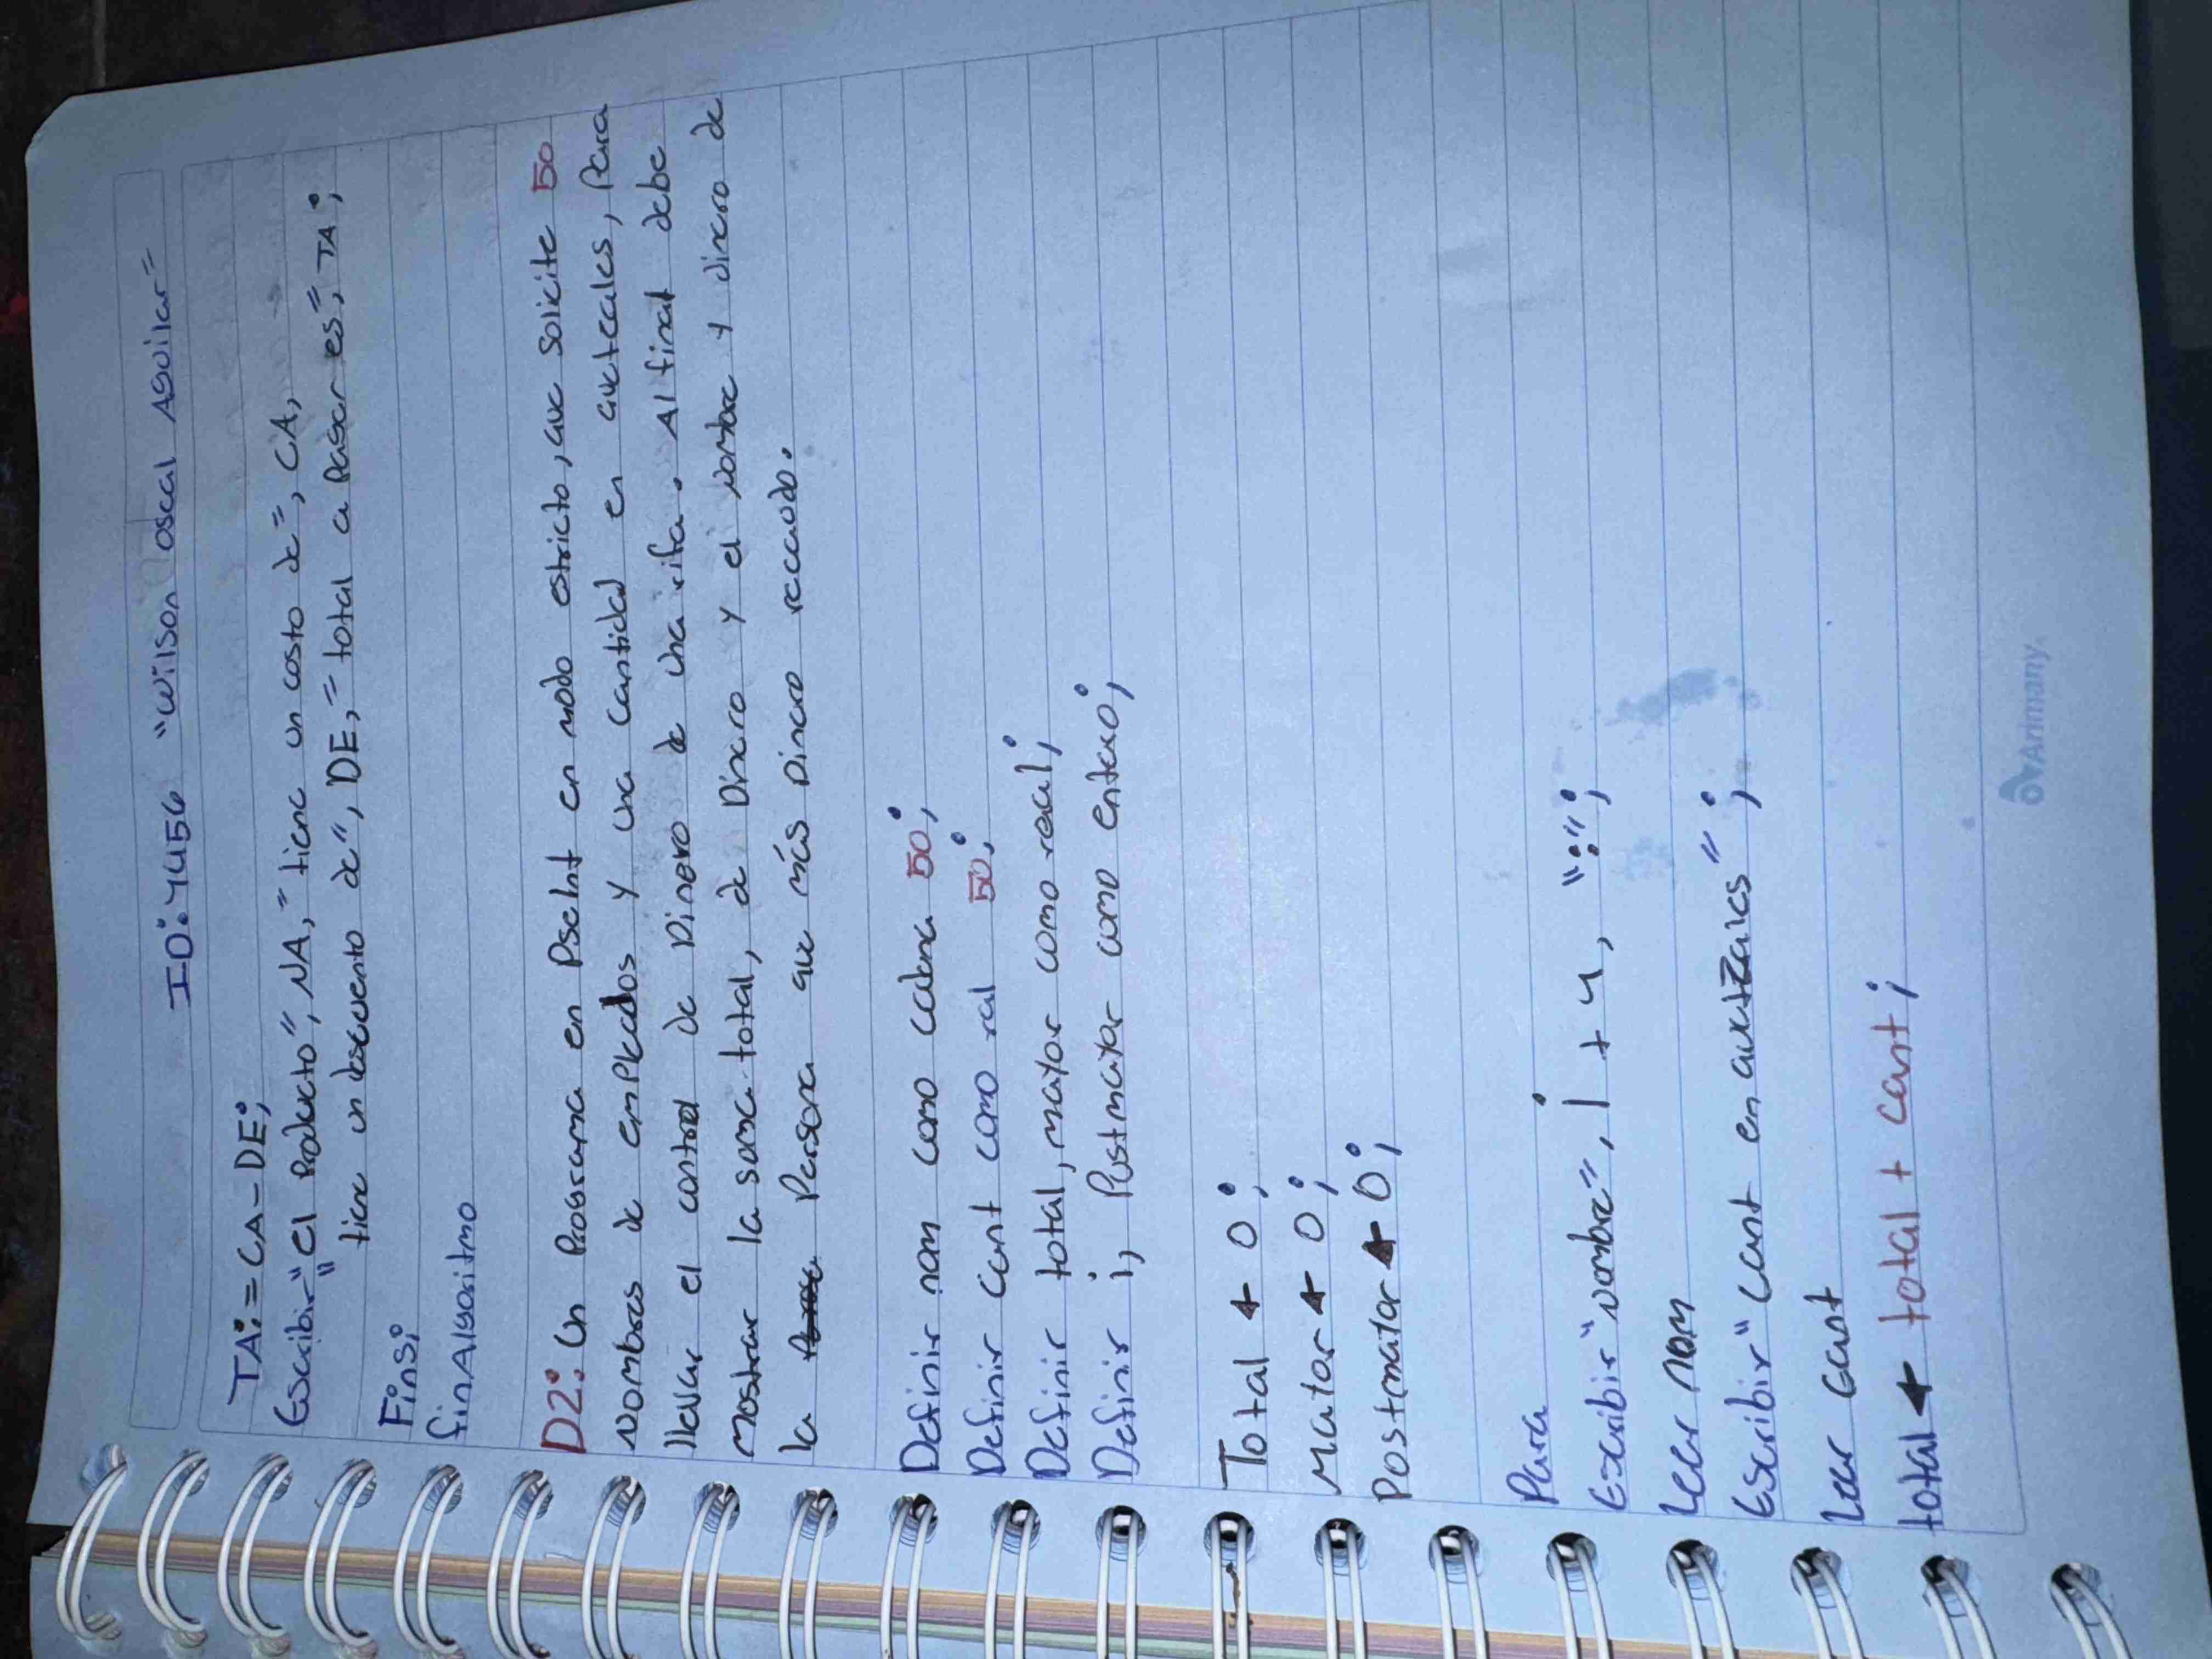 ID: 4456 "Wilson oscal Aguilar"
TA:= CA-DE;
Escribir "El Producto", NA, "tiene un costo de", CA,
"tiene un descuento de", DE, "total a Pagar es", TA;
Finsi
finAlgoritmo
D2: Un Programa en PseInt en modo estricto, que solicite 50
Nombres de empleados y una cantidad en quetzales, Para
llevar el control de Dinero de una rifa. Al final debe
mostrar la suma total, de Dinero y el nombre y dinero de
la Persona que más Dinero recaudo.
Definir nom como cadena 50;
Definir cant como ral 50;
Definir total, mayor como real;
Definir i, Postmayor como entero;
Total ← 0;
Mator ← 0;
Postmator ← 0;
Para
Escribir "Nombre", i + 4, ":";
Leer nom
Escribir "cant en quetzales";
Leer cant
total ← total + cant;
Arimany